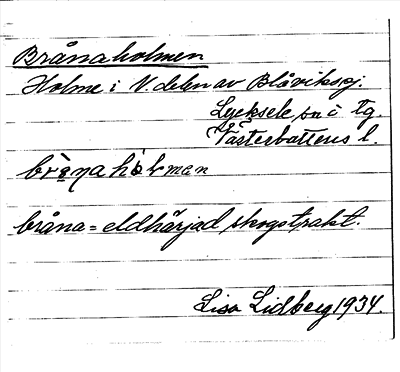 Brånaholmen
Holme i V. delen av Blåviksj.
Lycksele sn i Lg.
Västerbottens l.
bråna = eldhärjad skogstrakt.
Lisa Lidberg 1934.